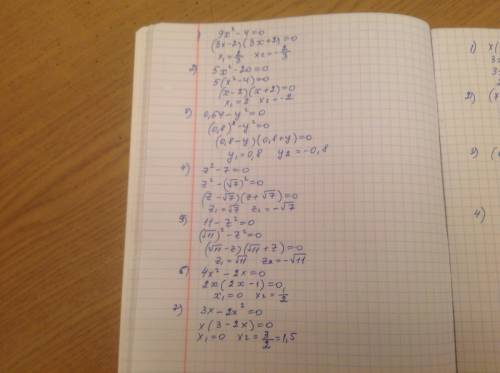 1) 9x² - 4 = 0
(3x-2)(3x+2)=0
x₁ = 2/3  x₂ = -2/3
2) 5x² - 20 = 0
5(x² - 4) = 0
(x-2)(x+2)=0
x₁ = 2  x₂ = -2
3) 0,64 - y² = 0
(0,8)² - y² = 0
(0,8-y)(0,8+y)=0
y₁ = 0,8  y₂ = -0,8
4) z² - 7 = 0
z² - (√7)² = 0
(z-√7)(z+√7)=0
z₁ = √7  z₂ = -√7
5) 11 - z² = 0
(√11)² - z² = 0
(√11-z)(√11+z)=0
z₁ = √11  z₂ = -√11
6) 4x² - 2x = 0
2x(2x-1)=0
x₁ = 0  x₂ = 1/2
7) 3x - 2x² = 0
x(3-2x)=0
x₁ = 0  x₂ = 3/2 = 1,5
1) x(
3
2) (x
3) (
4)